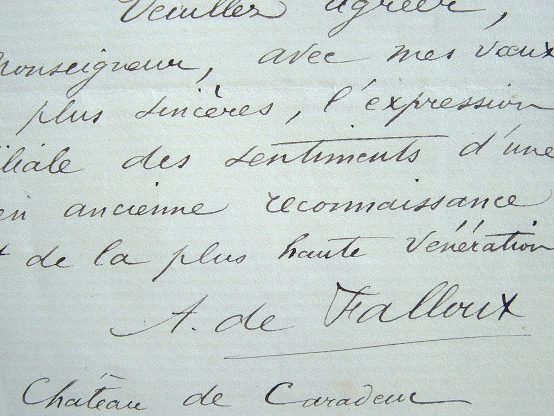 Veuillez agréer,
Monseigneur, avec mes vœux
plus sincères, l'expression
iliale des sentiments d'une
en ancienne reconnaissance
t de la plus haute vénération
A. de Falloux
Château de Caradeuc